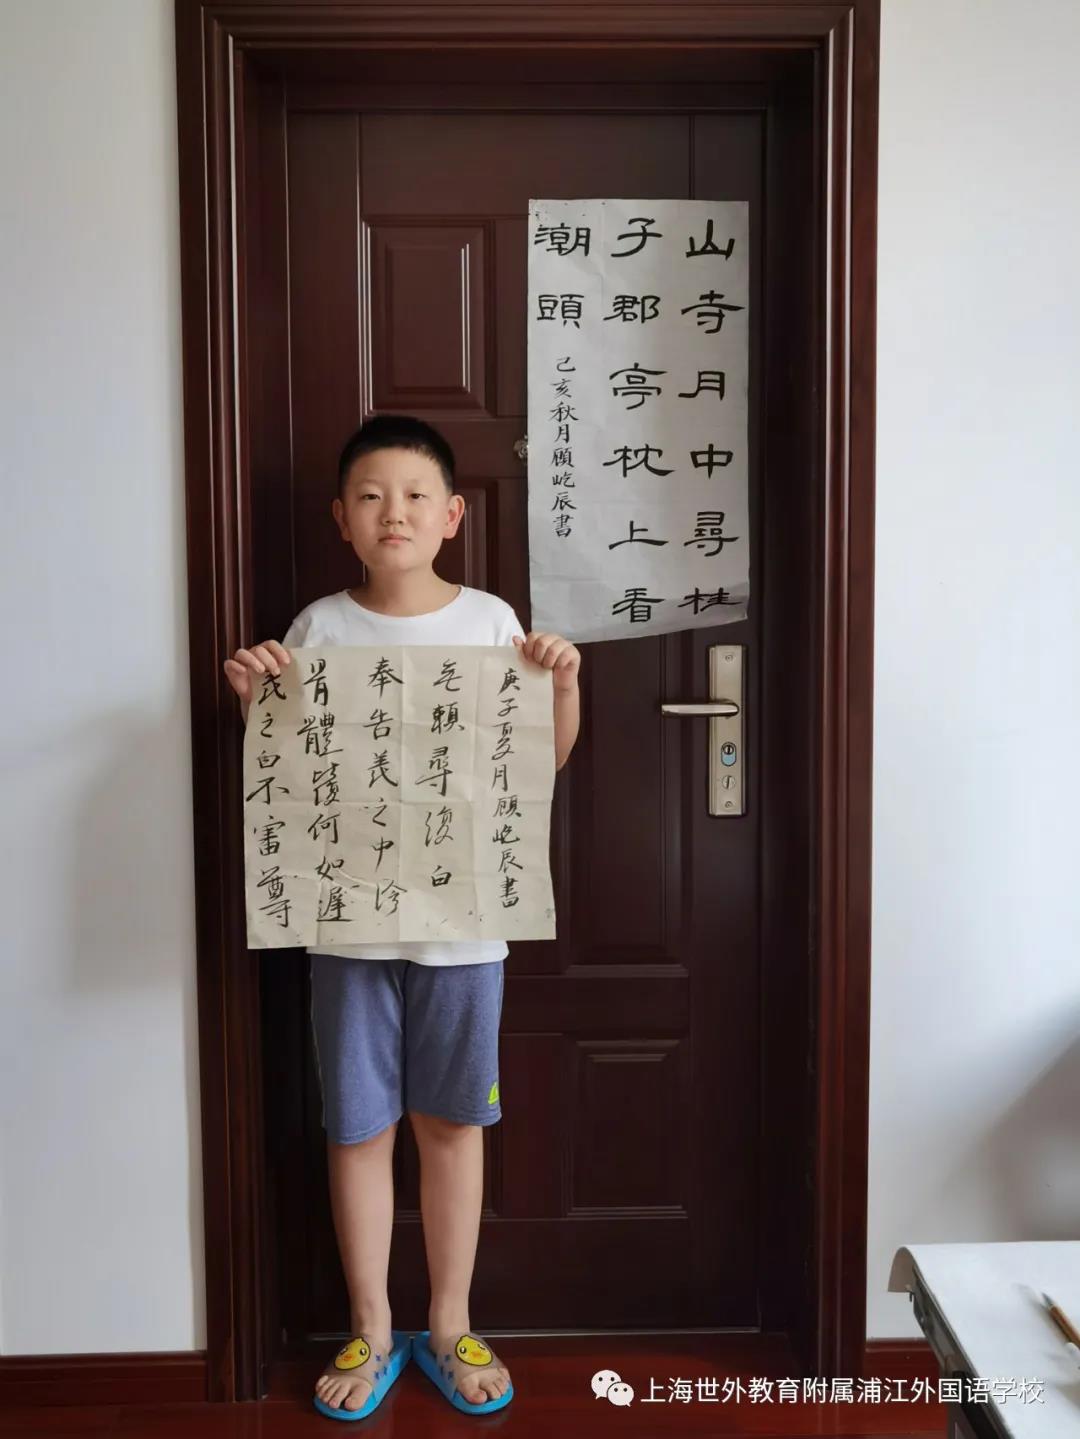 山寺月中尋桂
子郡亭枕上看
潮頭
己亥秋月顾屹辰書
羲之白不審尊
體比復何如遲
奉告羲之中冷
無賴尋復白
庚子夏月顾屹辰書
上海世外教育附属浦江外国语学校